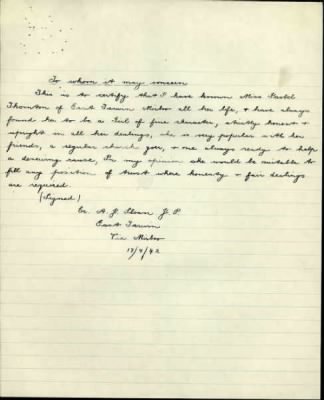 To whom it may concern
This is to certify that I have known Miss
Thomton of East Tarwin Mirboo all her life, & have always
found her to be a Girl of fine character, strictly honest &
upright in all her dealings, she is very popular with her
friends, a regular church goer, & one always ready to help
a deserving cause, In my opinion she would be suitable to
fill any position of trust where honesty & fair dealings
are required.
(Signed)
Cr. A. J. Sloan J. P.
East Tarwin
Via Mirboo
17/4/42